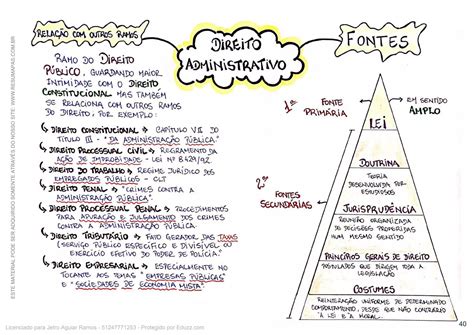 DIREITO
ADMINISTRATIVO
RELAÇÃO COM OUTROS RAMOS
RAMO DO DIREITO
PÚBLICO, GUARDANDO MAIOR
INTIMIDADE COM O DIREITO
CONSTITUCIONAL MAS TAMBÉM
SE RELACIONA COM OUTROS RAMOS
DO DIREITO, POR EXEMPLO:
DIREITO CONSTITUCIONAL → CAPÍTULO VII DO
TÍTULO III - "DA ADMINISTRAÇÃO PÚBLICA."
DIREITO PROCESSUAL CIVIL → REGRAMENTO DA
AÇÃO DE IMPROBIDADE - LEI Nº 8.429/92.
DIREITO DO TRABALHO → REGIME JURÍDICO DOS
EMPREGADOS PÚBLICOS - CLT
DIREITO PENAL → "CRIMES CONTRA A
ADMINISTRAÇÃO PÚBLICA."
DIREITO PROCESSUAL PENAL → PROCEDIMENTOS
PARA APURAÇÃO E JULGAMENTO DOS CRIMES
CONTRA A ADMINISTRAÇÃO PÚBLICA.
DIREITO TRIBUTÁRIO → FATO GERADOR DAS TAXAS
(SERVIÇO PÚBLICO ESPECÍFICO E DIVISÍVEL OU
EXERCÍCIO EFETIVO DO PODER DE POLÍCIA.)
DIREITO EMPRESARIAL → ESPECIALMENTE NO
TOCANTE AOS TEMAS "EMPRESAS PÚBLICAS
E "SOCIEDADES DE ECONOMIA MISTA"
FONTES
1ª FONTE
PRIMÁRIA
LEI
EM SENTIDO
AMPLO
2ª FONTES
SECUNDÁRIAS
DOUTRINA
TEORIA
DESENVOLVIDA POR
ESTUDIOSOS
JURISPRUDÊNCIA
REUNIÃO ORGANIZADA
DE DECISÕES PROFERIDAS
NUM MESMO SENTIDO
PRINCÍPIOS GERAIS DE DIREITO
POSTULADOS QUE DIRIGEM TODA A
LEGISLAÇÃO
COSTUMES
REITERAÇÃO UNIFORME DE DETERMINADO
COMPORTAMENTO,
ESTE MATERIAL PODE SER ADQUIRIDO SOMENTE ATRAVÉS DO NOSSO SITE: WWW.RESUMAPAS.COM.BR
Licenciado para Jairo Aguiar Ramos - 51247771253 - Protegido por Eduzz.com
40